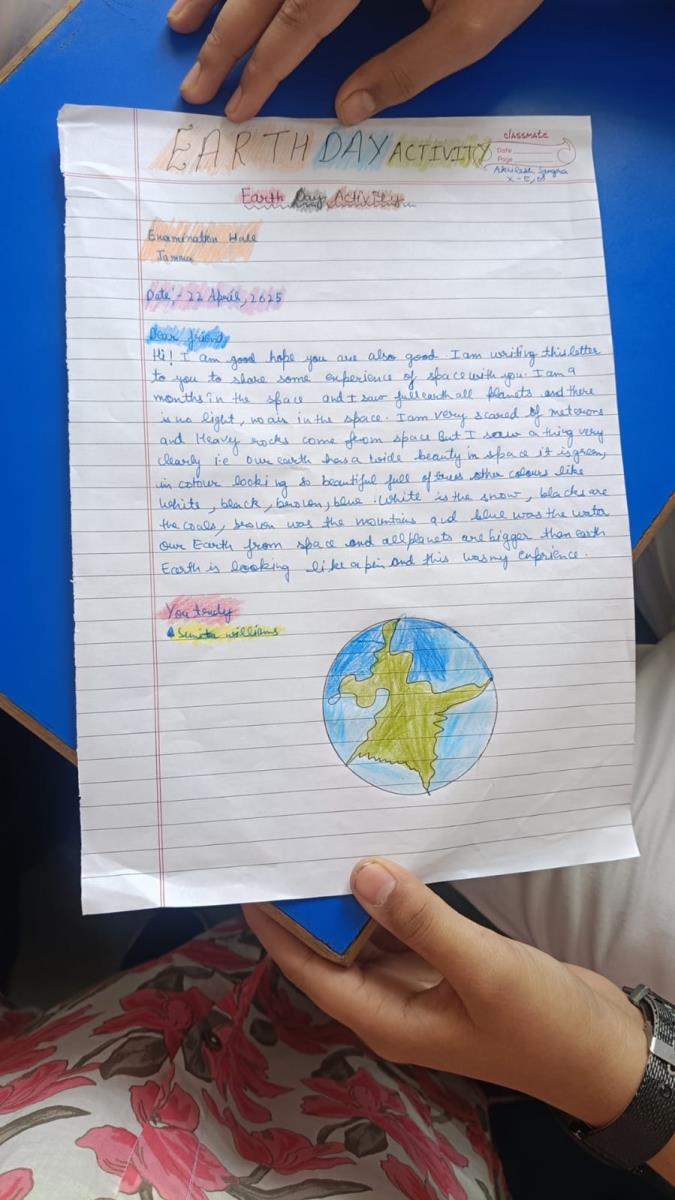 EARTH DAY ACTIVITY
classmate
Date
Page
X-E, 08
Earth Day Activity
Examination Hall
Jammu
Date:- 22 April, 2025
Dear friend,
Hi! I am good hope you are also good. I am writing this letter
to you to share some experience of space with you. I am a
months in the space and I saw full earth all planets and there
is no light, no air in the space. I am very scared of meterons
and Heavy rocks come from space But I saw a thing very
clearly i.e our earth has a wide beauty in space it is green,
in colour looking so beautiful full of trees other colours like
white, black, brown, blue. White is the snow, blacks are
the coals, brown was the mountains and blue was the water
our Earth from space and all planets are bigger than earth
Earth is looking like a pin and this was my exprience.
You truly
Sunita williams